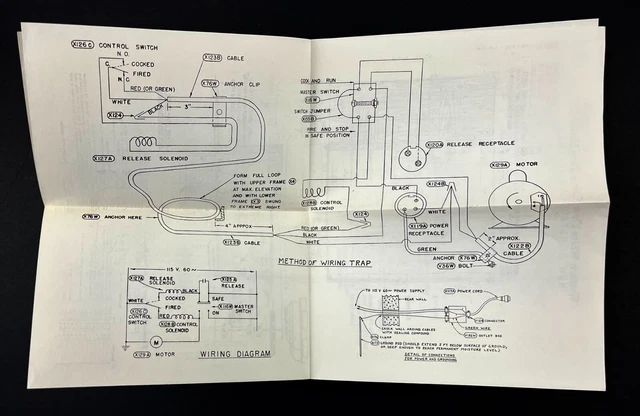 X126C CONTROL SWITCH
N.O.
C
COCKED
FIRED
N.C
RED (OR GREEN)
WHITE
BLACK
X124
X123B CABLE
X76W ANCHOR CLIP
3"
X127A
RELEASE SOLENOID
FORM FULL LOOP
WITH UPPER FRAME
AT MAX. ELEVATION
AND WITH LOWER
FRAME SWUNG
TO EXTREME RIGHT.
X76W ANCHOR HERE
4" APPROX
X123B CABLE
COCK AND RUN
MASTER SWITCH
SWITCH JUMPER
FIRE AND STOP
IN SAFE POSITION
X120A RELEASE RECEPTACLE
X129A MOTOR
CONTROL
SOLENOID
X124
RED (OR GREEN)
BLACK
WHITE
BLACK
X124B
WHITE
X119A POWER
RECEPTACLE
GREEN
2" APPROX.
X122B
CABLE
ANCHOR X76W
Y36W BOLT
METHOD OF WIRING TRAP
115 V. 60~
X127A RELEASE
SOLENOID
BLACK
WHITE
COCKED
FIRED
X126C
CONTROL
SWITCH
RED
CONTROL
SOLENOID
RELEASE
SAFE
MASTER
SWITCH
ON
M
X129A MOTOR
WIRING DIAGRAM
TO 115 V 60~ POWER SUPPLY
REAR WALL
POWER CORD
CONNECTOR
GREEN WIRE
OUTLET BOX
CAULK WALL AROUND CABLES
WITH SEALING COMPOUND
CLAMP
GROUND ROD (SHOULD EXTEND 3 FT. BELOW SURFACE OF GROUND,
OR DEEP ENOUGH TO REACH PERMANENT MOISTURE LEVEL.)
DETAIL OF CONNECTIONS
FOR POWER AND GROUNDING